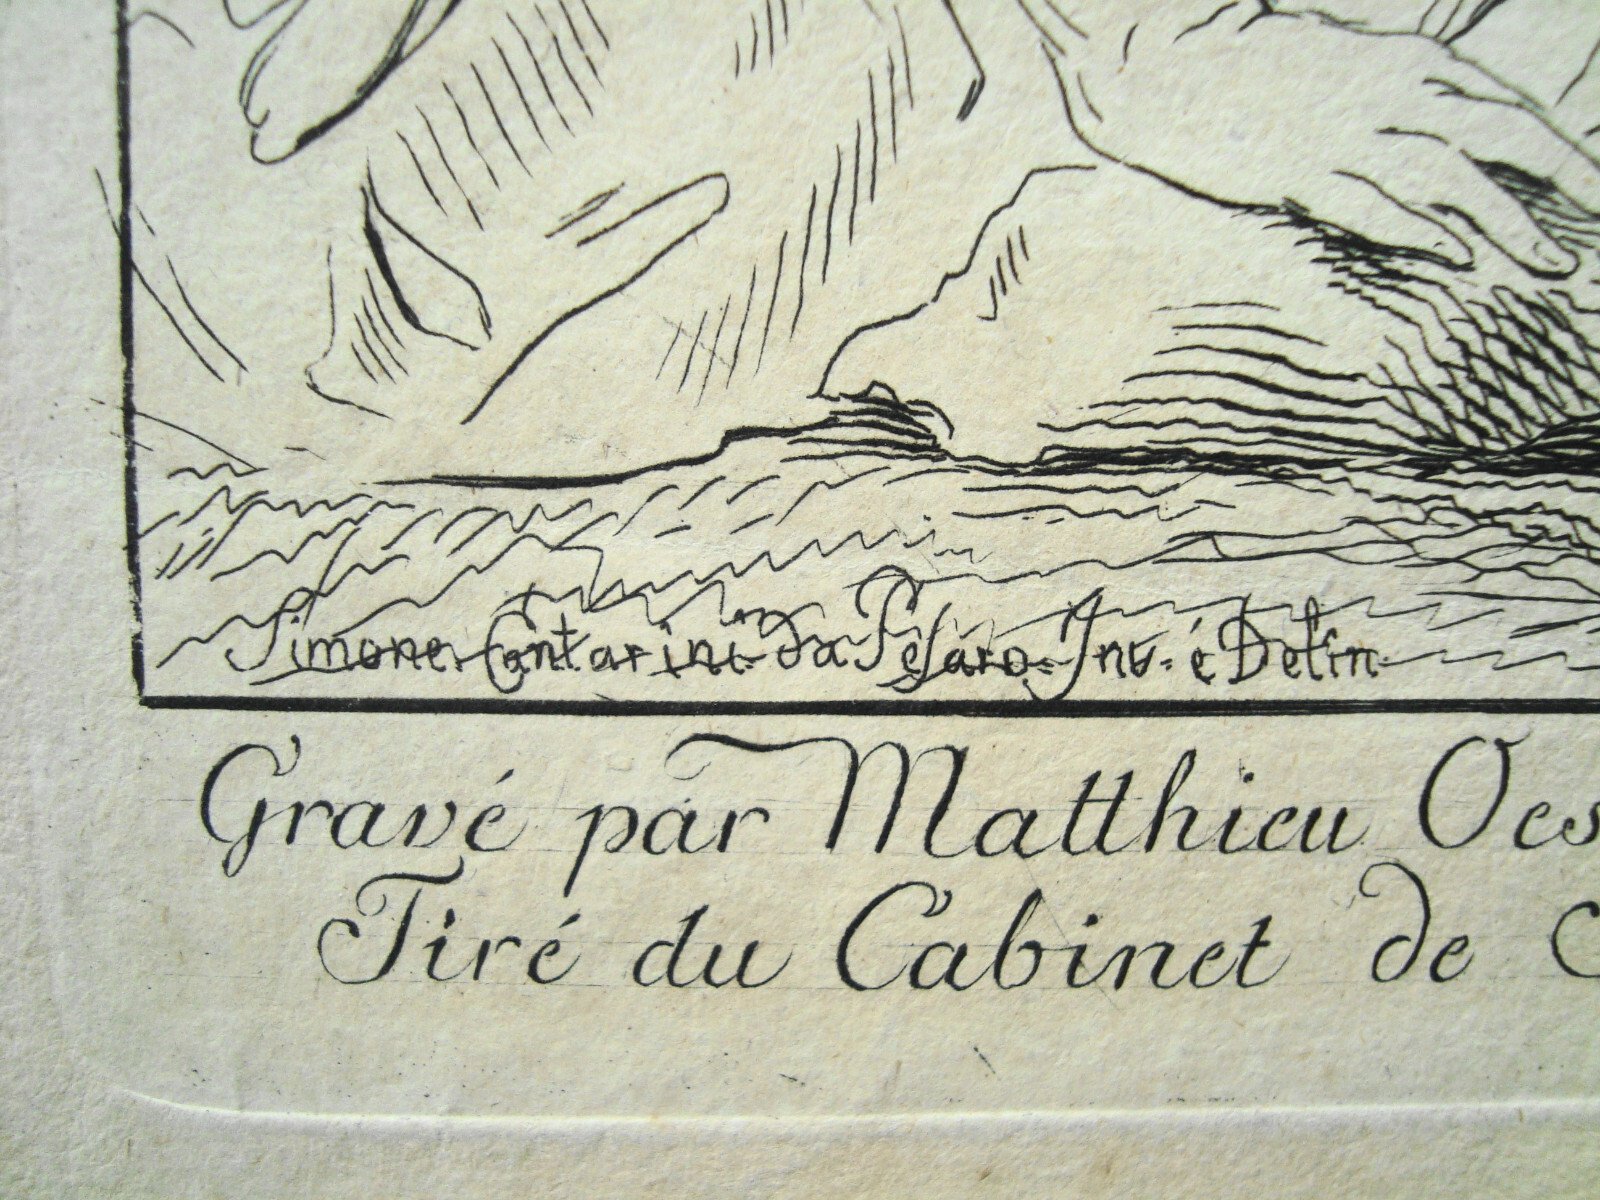 Simone Contarini da Pesaro Inv. é Delin
Gravé par Matthieu Oes
Tiré du Cabinet de